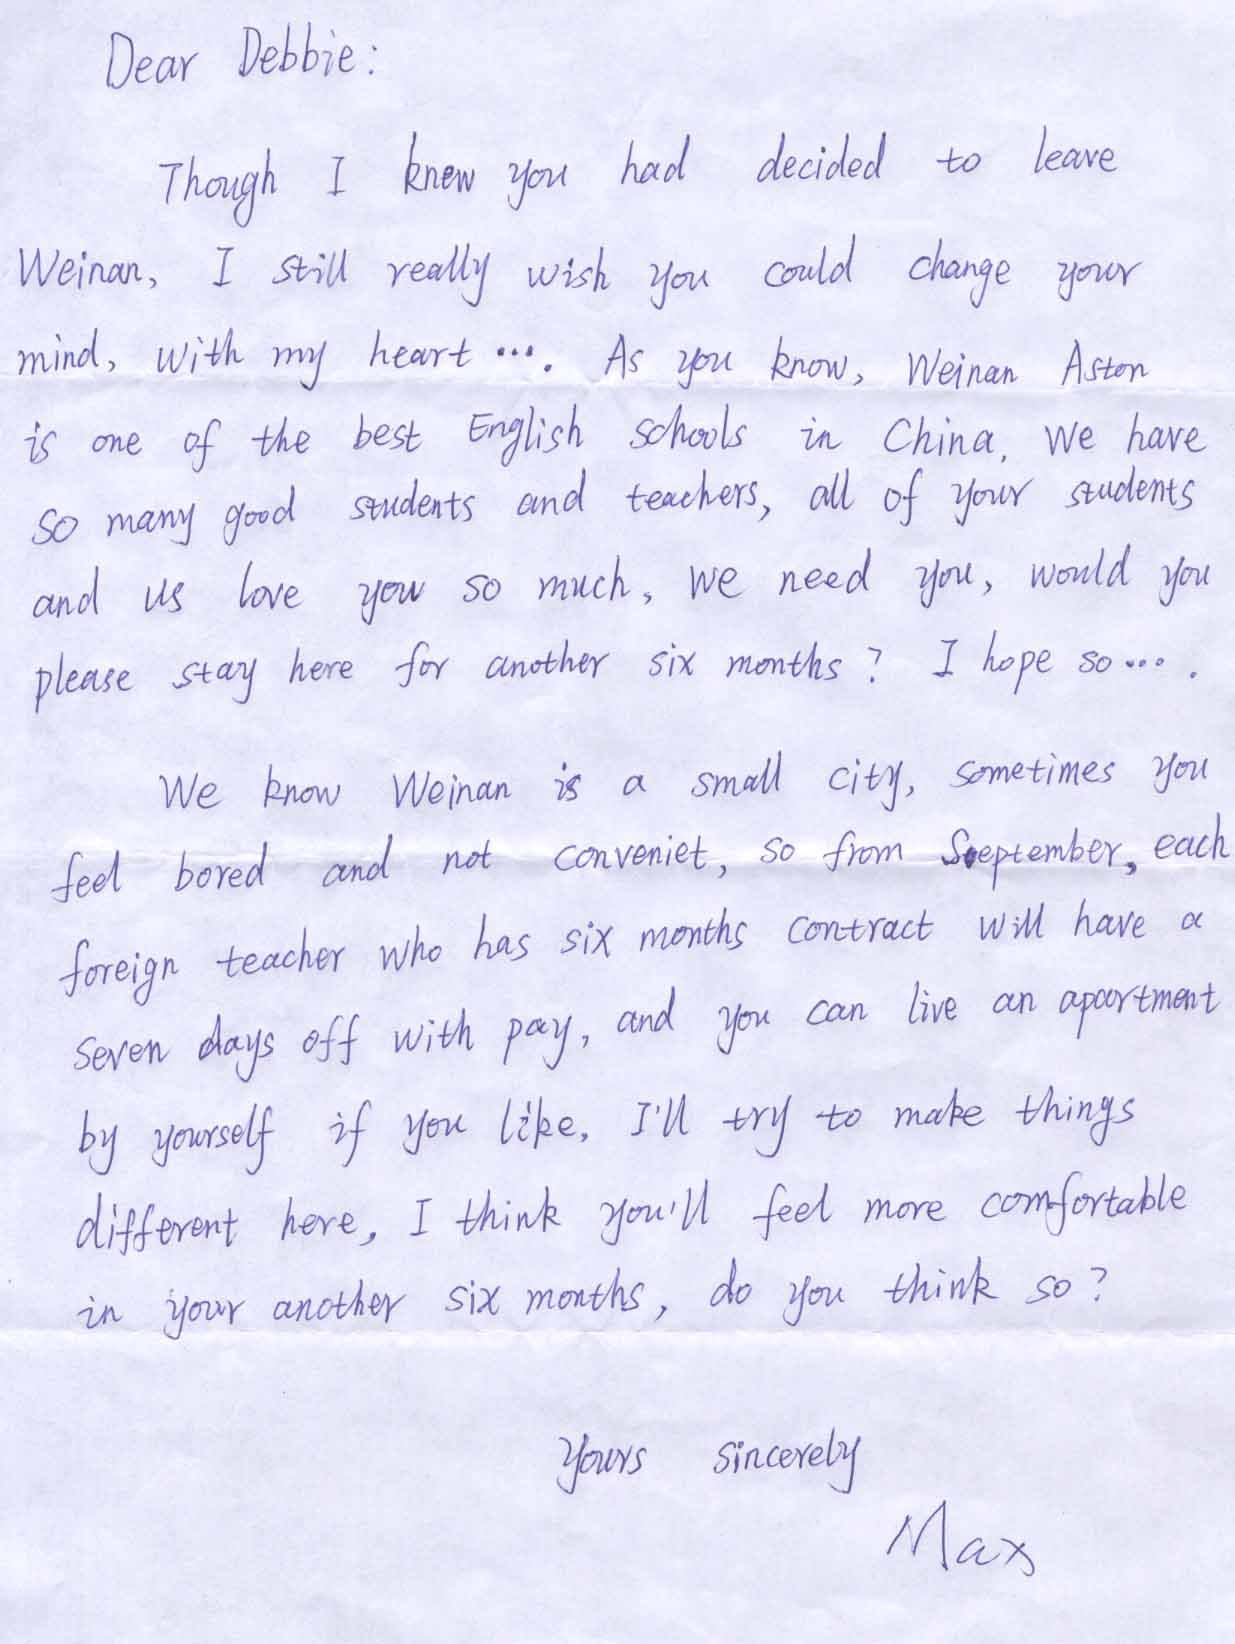 Dear Debbie:
Though I knew you had decided to leave
Weinan, I still really wish you could change your
mind, with my heart .... As you know, Weinan Aston
is one of the best English schools in China. We have
so many good students and teachers, all of your students
and us love you so much, we need you, would you
please stay here for another six months? I hope so ....
We know Weinan is a small city, sometimes you
feel bored and not conveniet, so from September, each
foreign teacher who has six months contract will have a
seven days off with pay, and you can live an apartment
by yourself if you like. I'll try to make things
different here, I think you'll feel more comfortable
in your another six months, do you think so?
Yours sincerely
Max